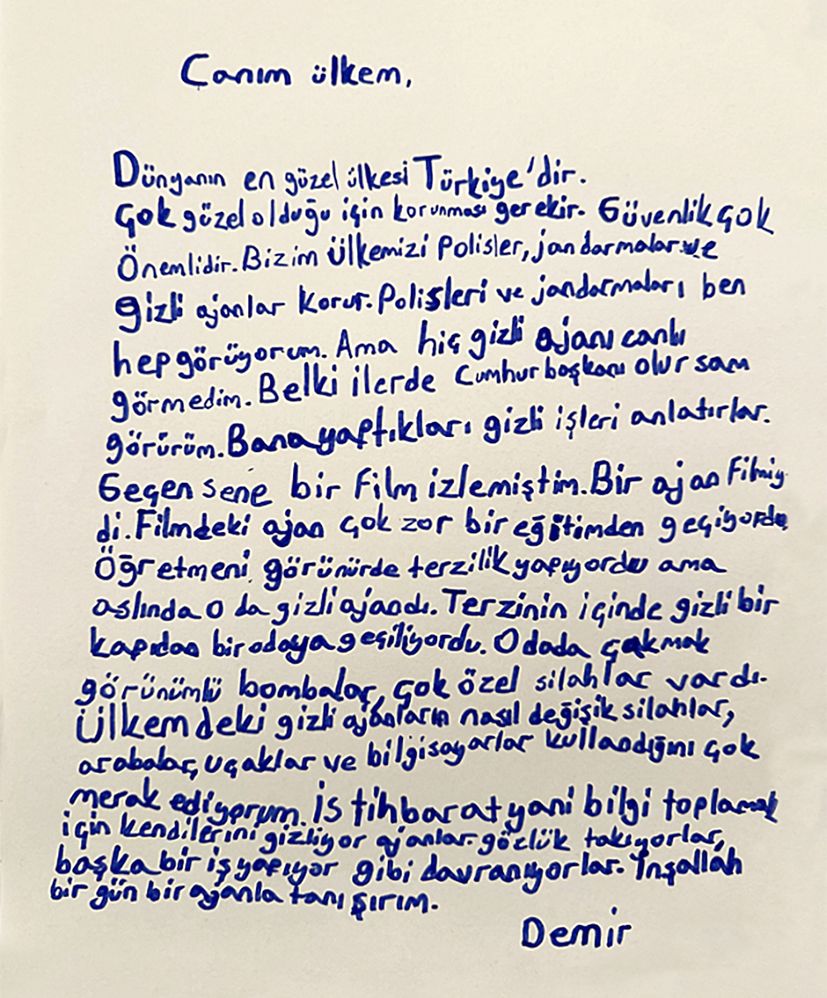 Canım ülkem,
Dünyanın en güzel ülkesi Türkiye'dir.
Çok güzel olduğu için korunması gerekir. Güvenlik çok
Önemlidir. Bizim ülkemizi Polisler, jandarmalar ve
gizli ajanlar korur. Polisleri ve jandarmaları ben
hep görüyorum. Ama hiç gizli ajanı canlı
görmedim. Belki ilerde Cumhurbaşkanı olursam
görürüm. Bana yaptıkları gizli işleri anlatırlar.
Geçen sene bir Film izlemiştim. Bir ajan Filmiy
di. Filmdeki ajan çok zor bir eğitimden geçiyordu
Öğretmeni görünürde terzilik yapıyordu ama
aslında o da gizli ajandı. Terzinin içinde gizli bir
kapıdan bir odaya geçiliyordu. O dada çakmak
görünümlü bombalar, çok özel silahlar vardı.
Ülkemdeki gizli ajanların nasıl değişik silahlar,
arabalar, uçaklar ve bilgisayarlar kullandığını çok
merak ediyorum. İstihbarat yani bilgi toplamak
için kendilerini gizliyor ajanlar. gözlük takıyorlar,
başka bir iş yapıyor gibi davranıyorlar. İnşallah
bir gün bir ajanla tanışırım.
Demir